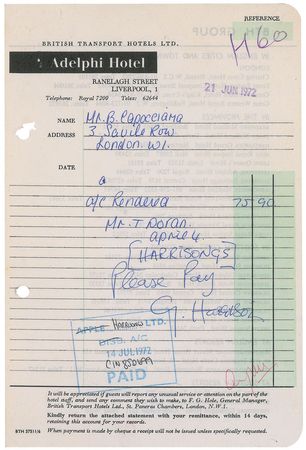 REFERENCE
H60
BRITISH TRANSPORT HOTELS LTD.
Adelphi Hotel
RANELAGH STREET
LIVERPOOL, 1
Telephone: Royal 7200 Telex: 62644
21 JUN 1972
NAME Mr. B. Capocciama
ADDRESS 3 Savile Row
London. W1.
DATE
a
a/c Rendered 75 90
Mr. T Doran.
April 4
[HARRISONGS]
Please Pay
G. Harrison
APPLE HARRISONGS LTD.
A/C
14 JUL 1972
PAID
It will be appreciated if guests will report any unusual service or attention on the part of the
hotel staff, and send any comments they wish to make, to F. G. Hole, General Manager,
British Transport Hotels Ltd., St. Pancras Chambers, London, N.W.1.
Kindly return the attached statement with your remittance, within 14 days,
retaining this account for your records.
BTH 3751/6 When payment is made by cheque a receipt will not be issued unless specifically requested.